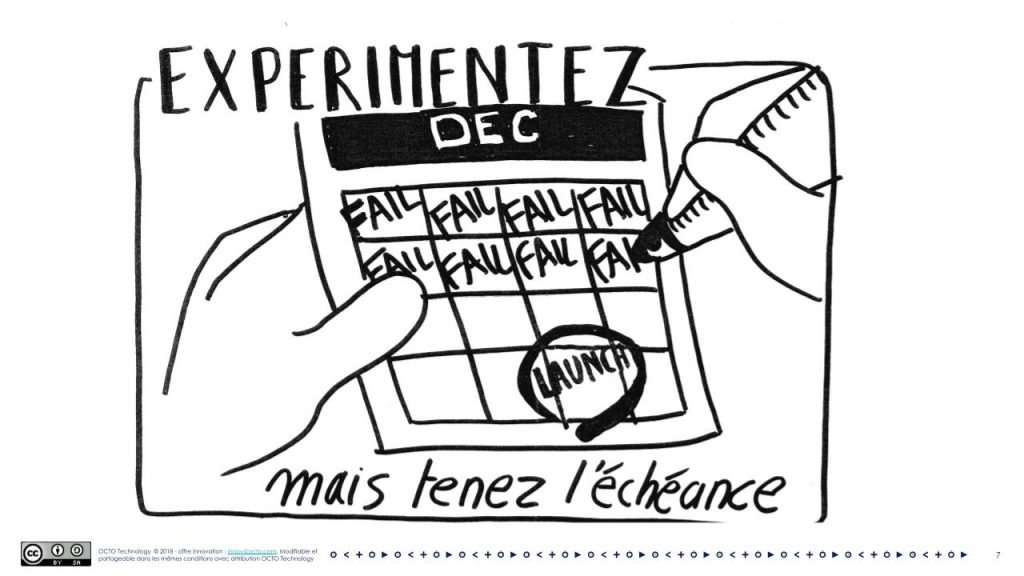 EXPERIMENTEZ
DEC
FAIL FAIL FAIL FAIL
FAIL FAIL FAIL FAI
LAUNCH
mais tenez l'échéance
cc BY SA
OCTO Technology © 2018 - offre innovation : innov@octo.com. Modifiable et
partageable dans les mêmes conditions avec attribution OCTO Technology
7